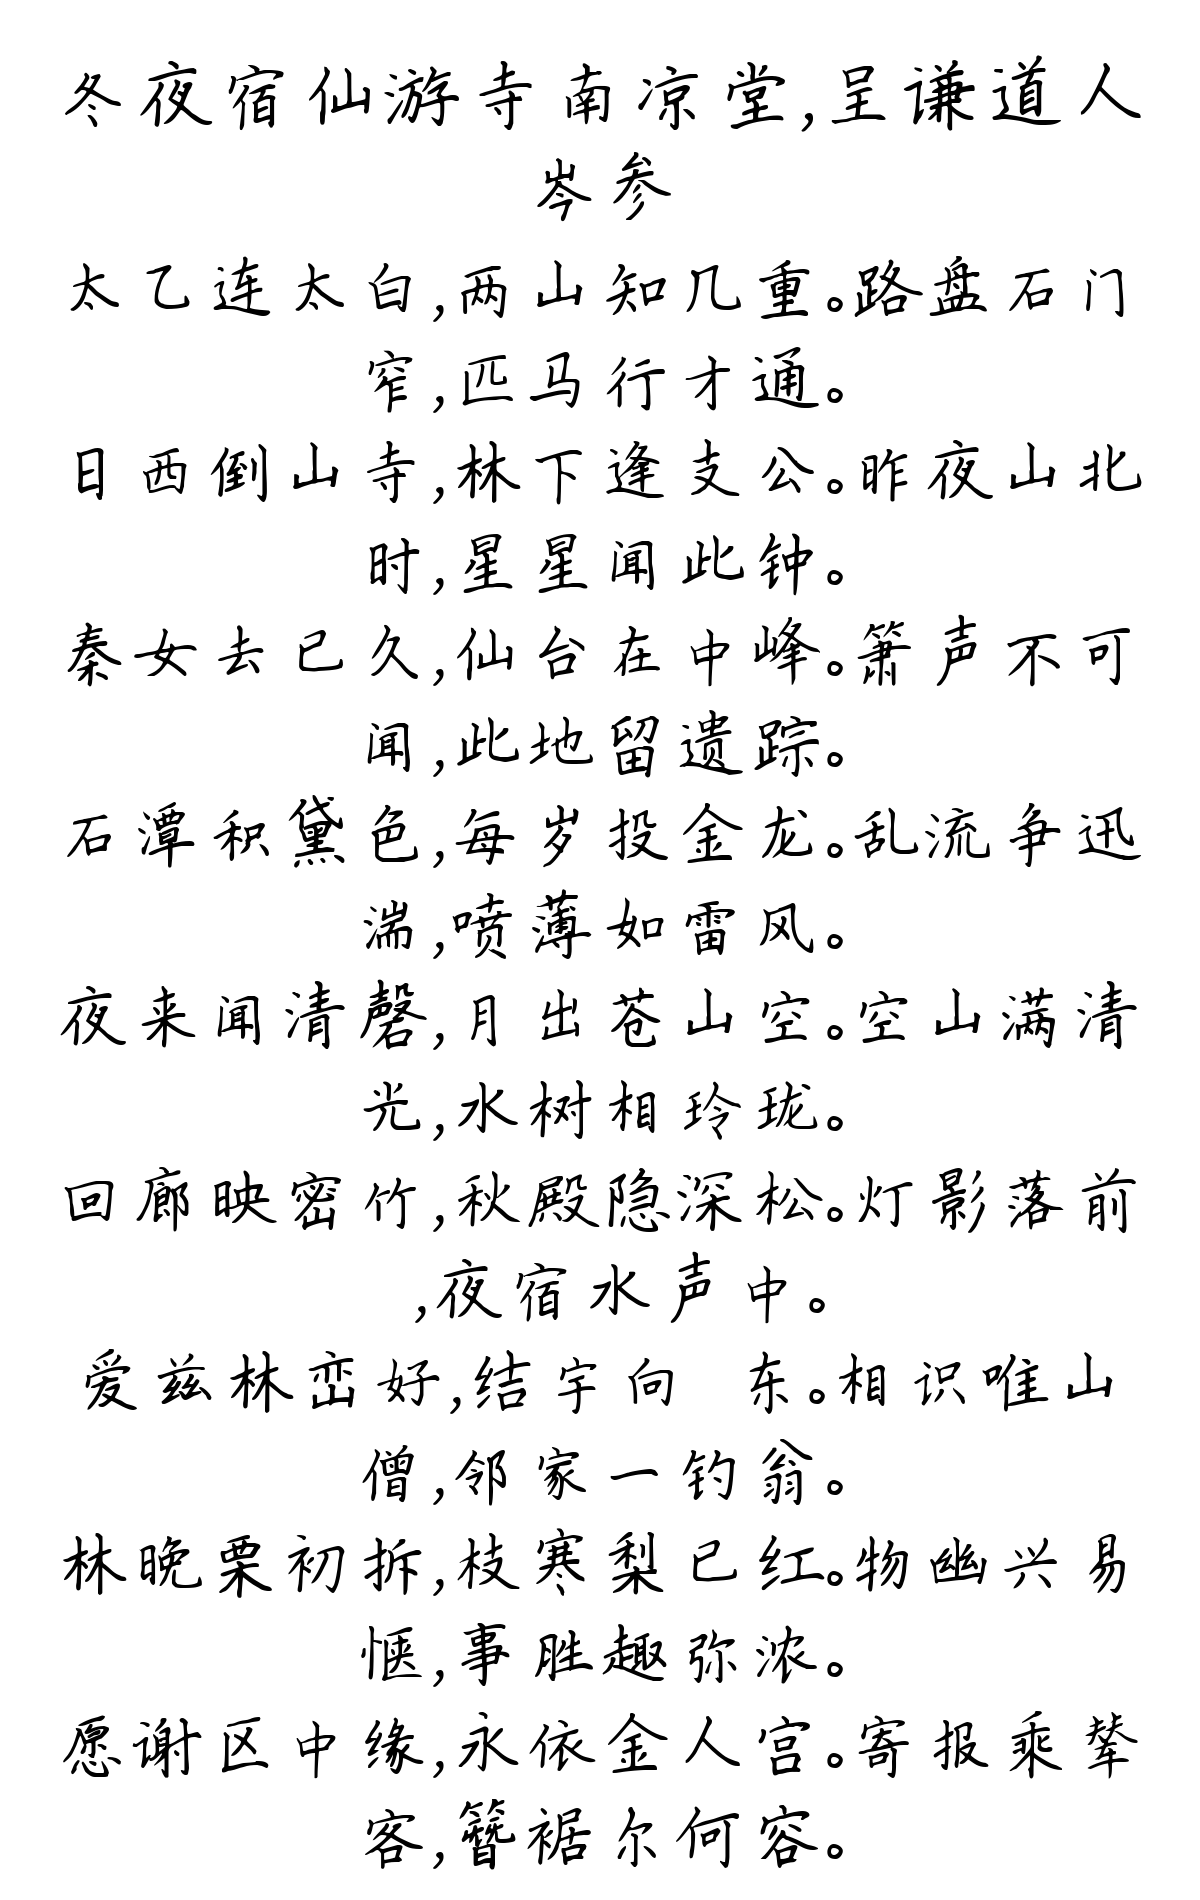 冬夜宿仙游寺南凉堂,呈谦道人
岑参
太乙连太白,两山知几重。路盘石门
窄,匹马行才通。
日西倒山寺,林下逢支公。昨夜山北
时,星星闻此钟。
秦女去已久,仙台在中峰。箫声不可
闻,此地留遗踪。
石潭积黛色,每岁投金龙。乱流争迅
湍,喷薄如雷风。
夜来闻清磬,月出苍山空。空山满清
光,水树相玲珑。
回廊映密竹,秋殿隐深松。灯影落前
,夜宿水声中。
爱兹林峦好,结宇向 东。相识唯山
僧,邻家一钓翁。
林晚栗初拆,枝寒梨已红。物幽兴易
惬,事胜趣弥浓。
愿谢区中缘,永依金人宫。寄报乘辇
客,簪裾尔何容。